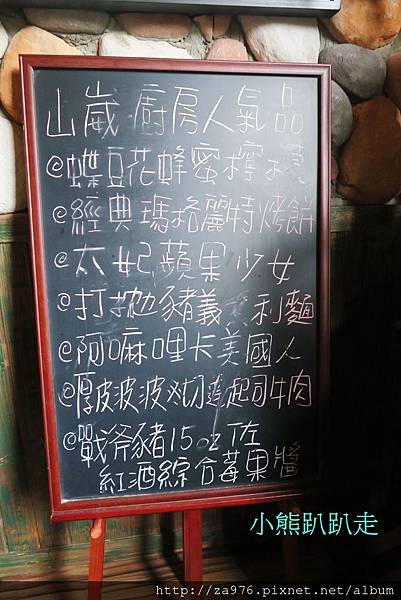 山嵗廚房人氣品
@蝶豆花蜂蜜檸檬
@經典瑪格麗特烤餅
@太妃蘋果少女
@打拋豬義大利麵
@阿嘛哩卡美國人
@厚皮波波刈切達起司牛肉
@戰斧豬15oz佐
紅酒綜合莓果醬
小熊趴趴走
http://za976.pixnet.net/album